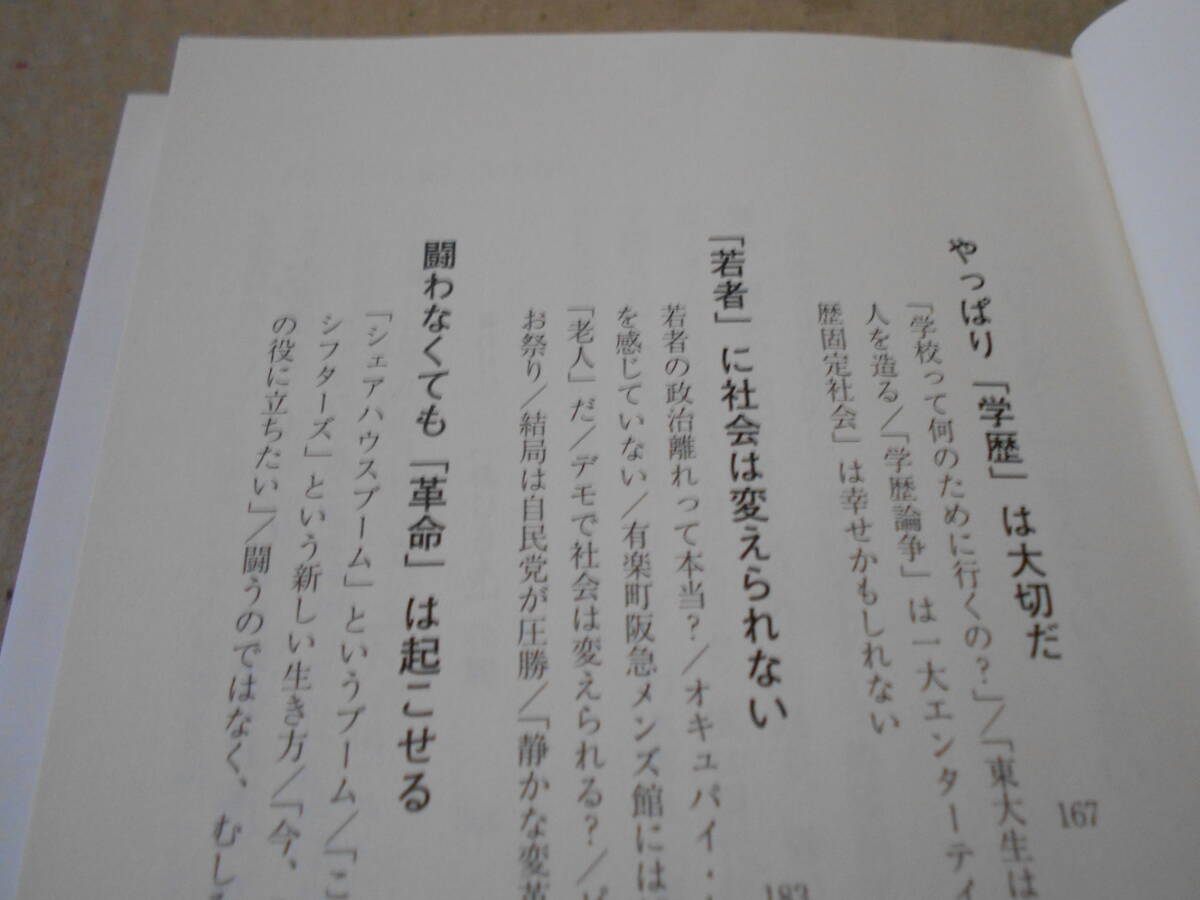 やっぱり「学歴」は大切だ
167
「学校って何のために行くの?」/「東大生は
人を造る/「学歴論争」は一大エンターティ
歴固定社会」は幸せかもしれない
「若者」に社会は変えられない
183
若者の政治離れって本当?/オキュパイ・
を感じていない/有楽町阪急メンズ館には
「老人」だ/デモで社会は変えられる?/
お祭り/結局は自民党が圧勝/「静かな変革
闘わなくても「革命」は起こせる
「シェアハウスブーム」というブーム/「こ
シフターズ」という新しい生き方/「今、
の役に立ちたい」/闘うのではなく、むしろ